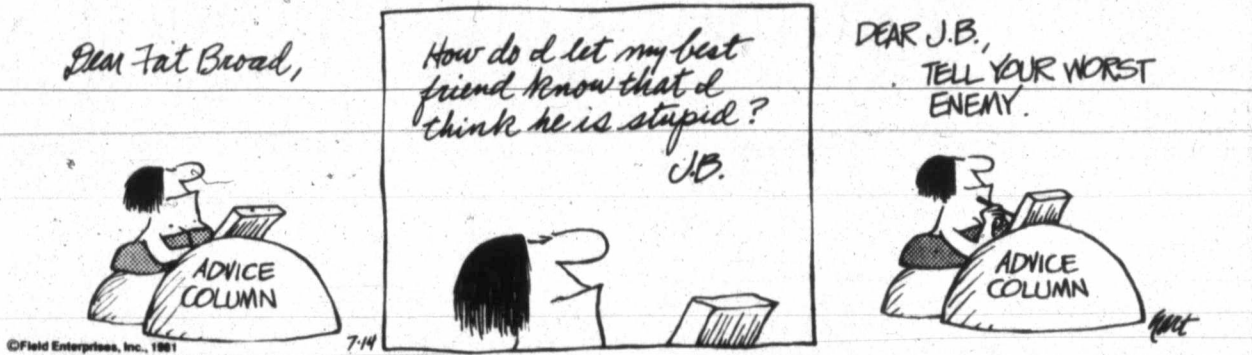 Dear Fat Broad,
ADVICE
COLUMN
©Field Enterprises, Inc., 1981
7-14
How do I let my best
friend know that I
think he is stupid?
J.B.
DEAR J.B.,
TELL YOUR WORST
ENEMY.
ADVICE
COLUMN
Hart